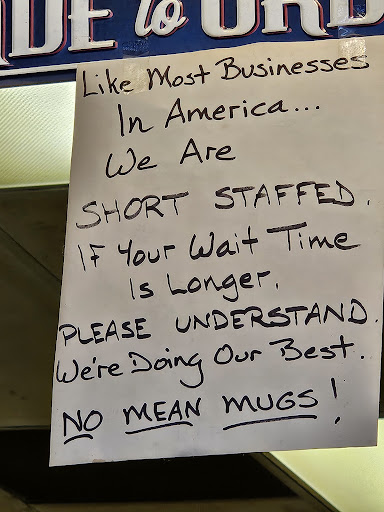 DE to ORD
Like Most Businesses
In America...
We Are
SHORT STAFFED.
IF Your Wait Time
Is Longer,
PLEASE UNDERSTAND.
We're Doing Our Best.
NO MEAN MUGS!